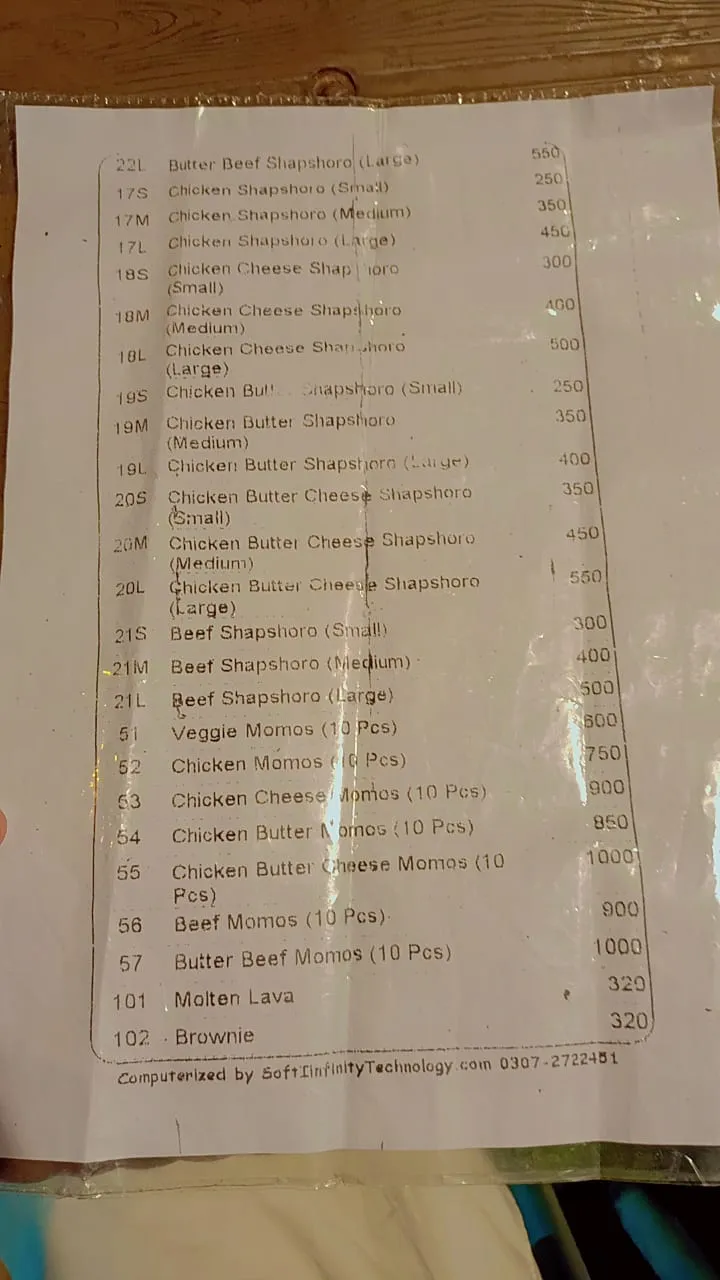 22L Butter Beef Shapshoro (Large) 550
17S Chicken Shapshoro (Small) 250
17M Chicken Shapshoro (Medium) 350
17L Chicken Shapshoro (Large) 450
18S Chicken Cheese Shapshoro 300
(Small)
18M Chicken Cheese Shapshoro 400
(Medium)
18L Chicken Cheese Shapshoro 500
(Large)
19S Chicken Butter Shapshoro (Small) 250
19M Chicken Butter Shapshoro 350
(Medium)
19L Chicken Butter Shapshoro (Large) 400
20S Chicken Butter Cheese Shapshoro 350
(Small)
20M Chicken Butter Cheese Shapshoro 450
(Medium)
20L Chicken Butter Cheese Shapshoro 550
(Large)
21S Beef Shapshoro (Small) 300
21M Beef Shapshoro (Medium) 400
21L Beef Shapshoro (Large) 500
51 Veggie Momos (10 Pcs) 600
52 Chicken Momos (10 Pcs) 750
53 Chicken Cheese Momos (10 Pcs) 900
54 Chicken Butter Momos (10 Pcs) 850
55 Chicken Butter Cheese Momos (10 1000
Pcs)
56 Beef Momos (10 Pcs) 900
57 Butter Beef Momos (10 Pcs) 1000
101 Molten Lava 320
102 Brownie 320
Computerized by SoftIinfinityTechnology.com 0307-2722451